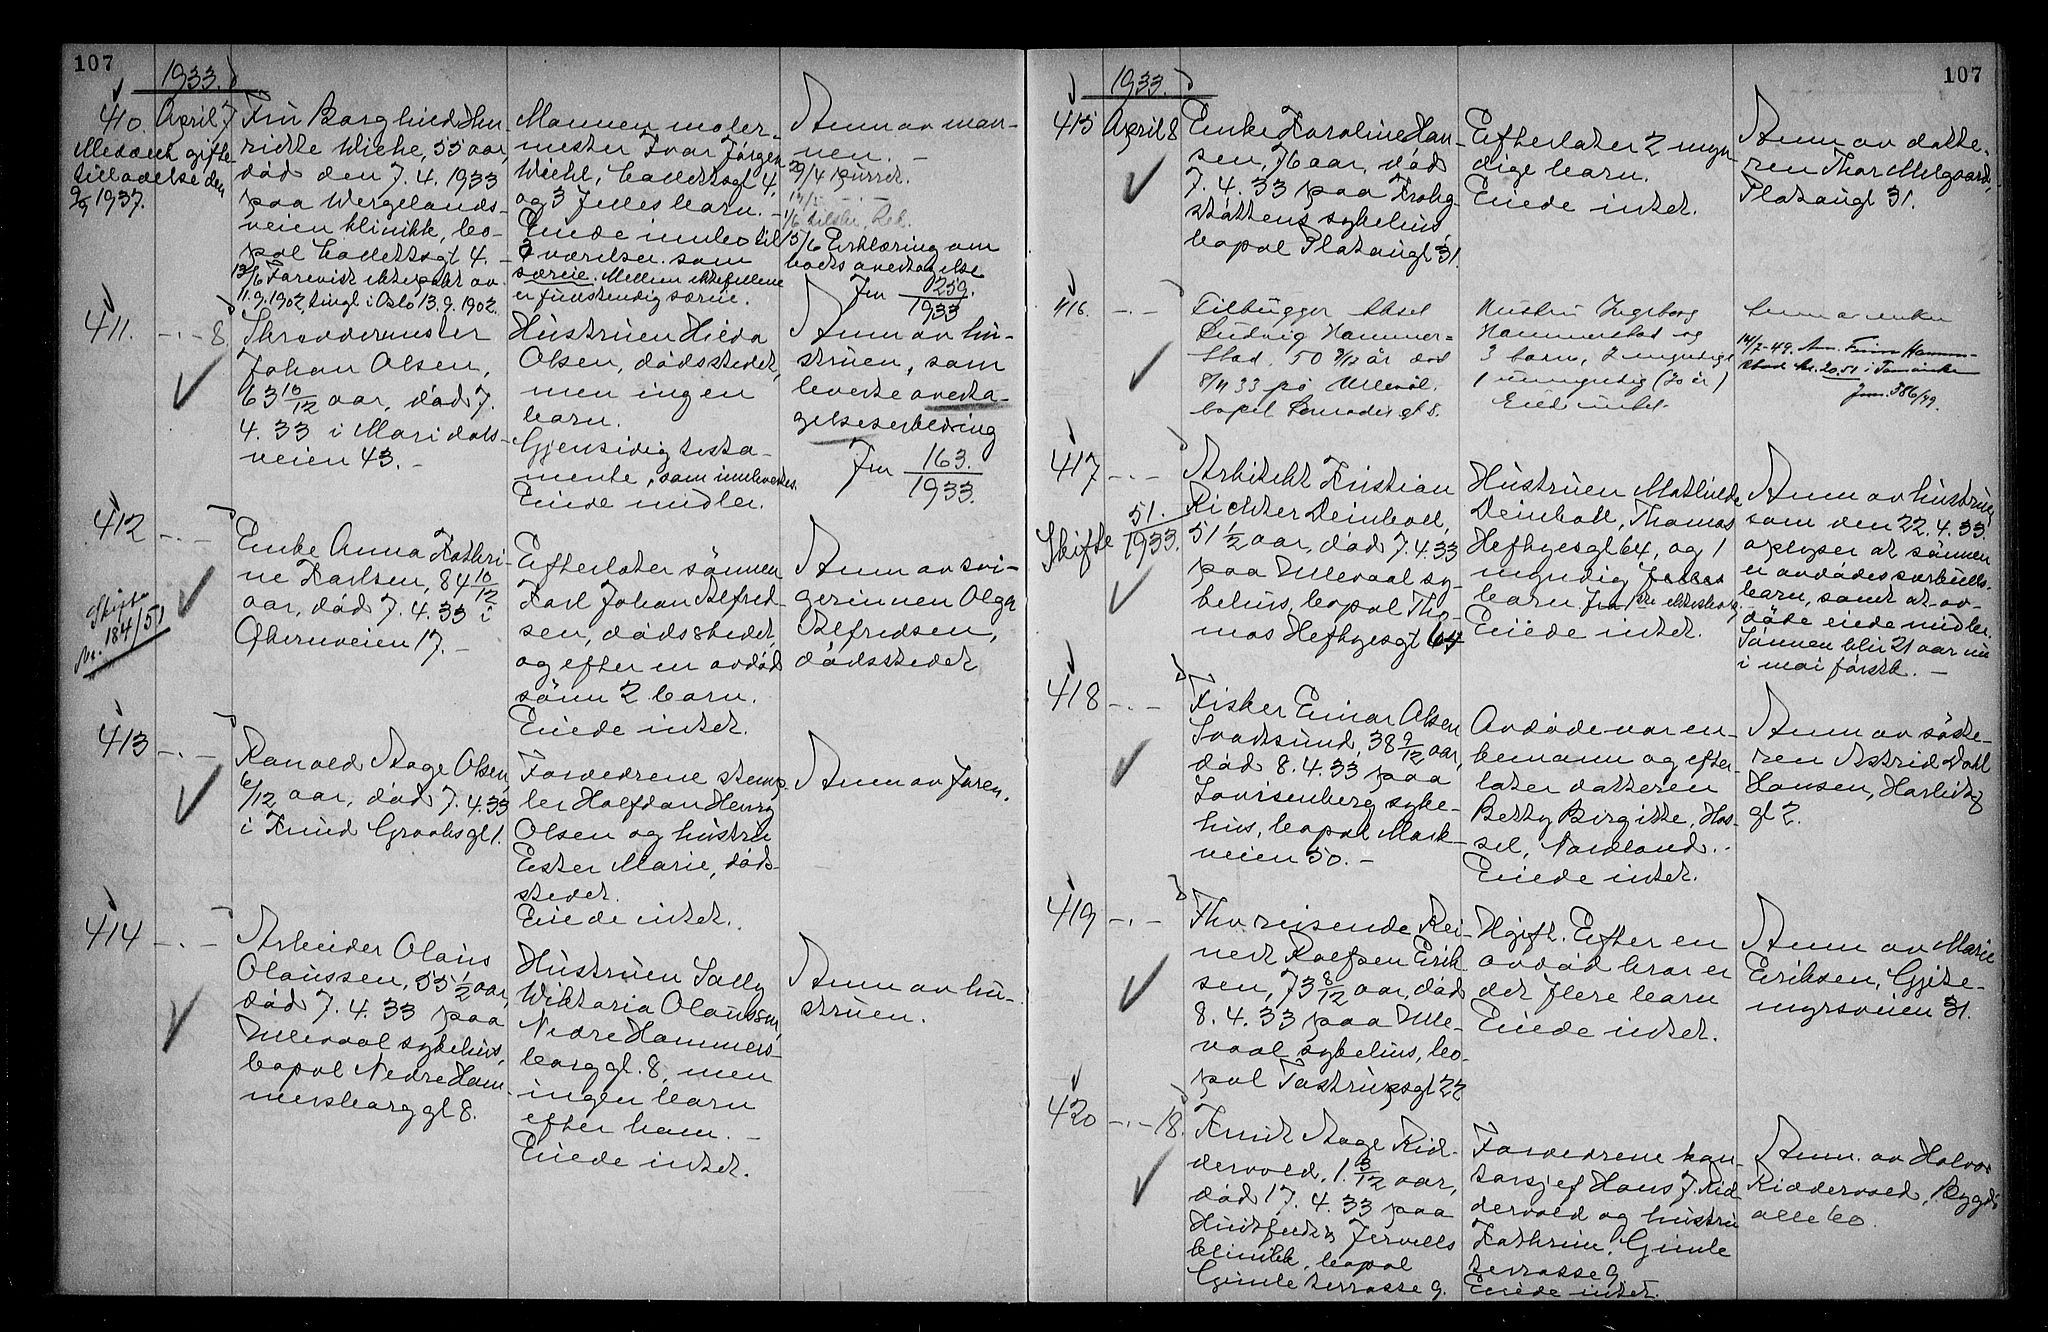 107
1933.
410.
April 7
Meddelt gifte
tilladelse den
9/9 1937.
Fru Borghild Hen-
riette Wiehe, 55 aar,
død den 7.4.1933
paa Wergelands-
veien klinikk, bo-
pæl Cadettsgt 4. -
12/6 Forevist ektepakt av
11.9.1902, tingl i Oslo 13.9.1902.
Mannen maler-
mester Ivar Jørgen
Wiehe, Cadettsgt 4,
og 3 felles barn. -
Eiede innbo til
3 værelser som
særeie. Mellem ektefellene
er fuldstendig særeie.
Anm av man-
nen. -
29/4 purret.
15/6 Erklæring om
bods overtagelse
Jnr 0259.
1933
411.
-.- 8.
Skreddermester
Johan Olsen,
63 10/12 aar, død 7.
4.33 i Maridals-
veien 43. -
Hustruen Hilda
Olsen, dødsstedet,
men ingen
barn.
Gjensidig testa-
mente, som innleveres.
Eiede midler.
Anm av hu-
struen, som
leverte overta-
gelseserklæring
Jnr 163.
1933.
412
-.-
Skifte
Nr. 184/51
Enke Anna Kathri-
ne Karlsen, 84 10/12
aar, død 7.4.33 i
Økernveien 17. -
Efterlater sønnen
Karl Johan Alfred-
sen, dødsstedet,
og efter en avdød
sønn 2 barn.
Eiede intet.
Anm av svi-
gerinnen Olga
Alfredsen,
dødsstedet
413
-.-
Ranold Aage Olsen,
6/12 aar, død 7.4.33
i Knud Graahsgt 1.
Forældrene stemp-
ler Halfdan Henry
Olsen og hustru
Ester Marie, døds-
stedet.
Eiede intet.
Anm av faren.
414
-.-
Arbeider Olaus
Olaussen, 55 1/2 aar,
død 7.4.33 paa
Ullevaal sykehus,
bopæl Nedre Ham-
mersborggt 8.
Hustruen Sally
Wiktoria Olaussen,
Nedre Hammers-
borggt. 8, men
ingen barn
efter ham. -
Eiede intet.
Anm av hu-
struen.
107
1933.
415
April 8
Enke Karoline Han-
sen, 76 aar, død
7.4.33 paa Krohg-
støttens sykehus,
bopæl Platougt 31.
Efterlater 2 myn-
dige barn.
Eiede intet.
Anm av datte-
ren Thor Melgaard,
Platougt 31.
416.
-.-
Tilbygger Aksel
Ludvig Hammer-
stad. 50 9/12 år død
8/4 33 på Ullevål.
Hustru Ingeborg
Hammerstad og
3 barn, 2 myndige
1 umyndig (20 år)
Eied intet.
Anm av enken
14/2-49. Anm. Finn Hammer-
stad
Jnr. 386/49.
417
-.-
Skifte
51.
1933.
Arkitekt Kristian
Richter Deinboll,
51 1/2 aar, død 7.4.33
paa Ullevaal sy-
kehus, bopæl Tho-
mas Heftyesgt 64
Hustruen Mathilde
Deinboll, Thomas
Heftyesgt 64, og 1
myndig felles
barn
Eiede intet.
Anm av hustruen
som den 22.4.33.
oplyser at sønnen
er avdødes særkulls-
barn, samt at av-
døde eiede midler.
Sønnen blir 21 aar nu
i mai først. -
418
-.-
Fisker Einar Olsen
Svartsund, 38 9/12 aar,
død 8.4.33 paa
Lovisenberg syke-
hus, bopæl Mark-
veien 50. -
Avdøde var en-
kemann og efter-
later datteren
Betty Birgitte, Has-
sel, Nordland. -
Eiede intet.
Anm av søste-
ren Astrid Dahl
Hansen, Harbitz
gt 2.
419
-.-
Fhv reisende Rei-
nert Roelfsen Erik-
sen, 73 8/12 aar, død
8.4.33 paa Ulle-
vaal sykehus, bo-
pæl Tostrupsgt 22
Ugift. Efter en
avdød bror er
det flere barn
Eiede intet.
Anm av Marie
Eriksen, Gjite-
myrsveien 31.
420
-.- 18.
Knut Aage Rid-
dervold, 1 3/12 aar,
død 17.4.33 paa
Huitfeldts Jervells
klinikk, bopæl
Gimle terrasse 9.
Forældrene kon-
torsjef Hans J. Rid-
dervold og hustru
Kathrine, Gimle
terrasse 9
Eiede intet.
Anm. av Halvor
Riddervold, Bygdø
alle 60.